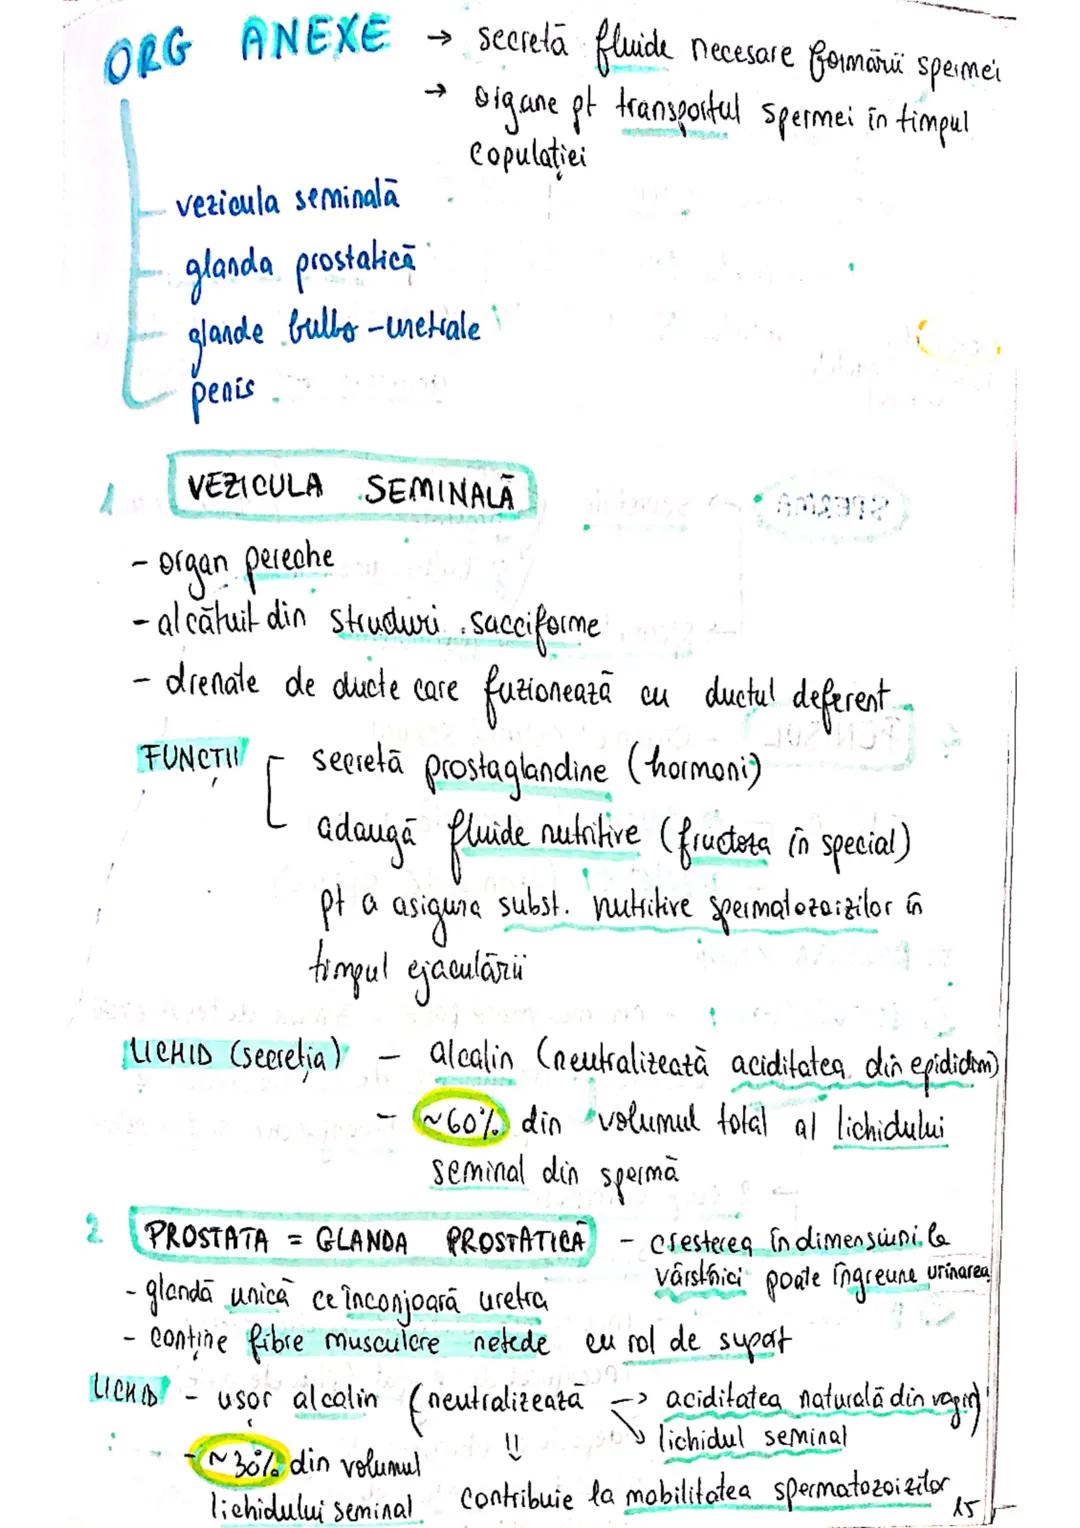 ORG ANEXE → secretă fluide necesare formării spermei
→ organe pt transportul spermei în timpul
copulației
vezicula seminală
glanda prostatică
glande bulbo-uretrale
penis
1 VEZICULA SEMINALĂ
- organ pereche
- alcătuit din structuri sacciforme
- drenate de ducte care fuzionează cu ductul deferent
FUNCȚII secretă prostaglandine (hormoni)
adaugă fluide nutritive (fructoza în special)
pt a asigura subst. nutritive spermatozoizilor în
timpul ejaculării
LICHID (secreția) - alcalin (neutralizează aciditatea din epididim)
- ~60% din volumul total al lichidului
seminal din spermă
2 PROSTATA = GLANDA PROSTATICĂ - creșterea în dimensiuni la
vârstnici poate îngreuna urinarea
- glandă unică ce înconjoară uretra
- conține fibre musculare netede cu rol de suport
LICHID - ușor alcalin (neutralizează → aciditatea naturală din vagin)
↘ lichidul seminal
- ~30% din volumul
lichidului seminal contribuie la mobilitatea spermatozoizilor
15